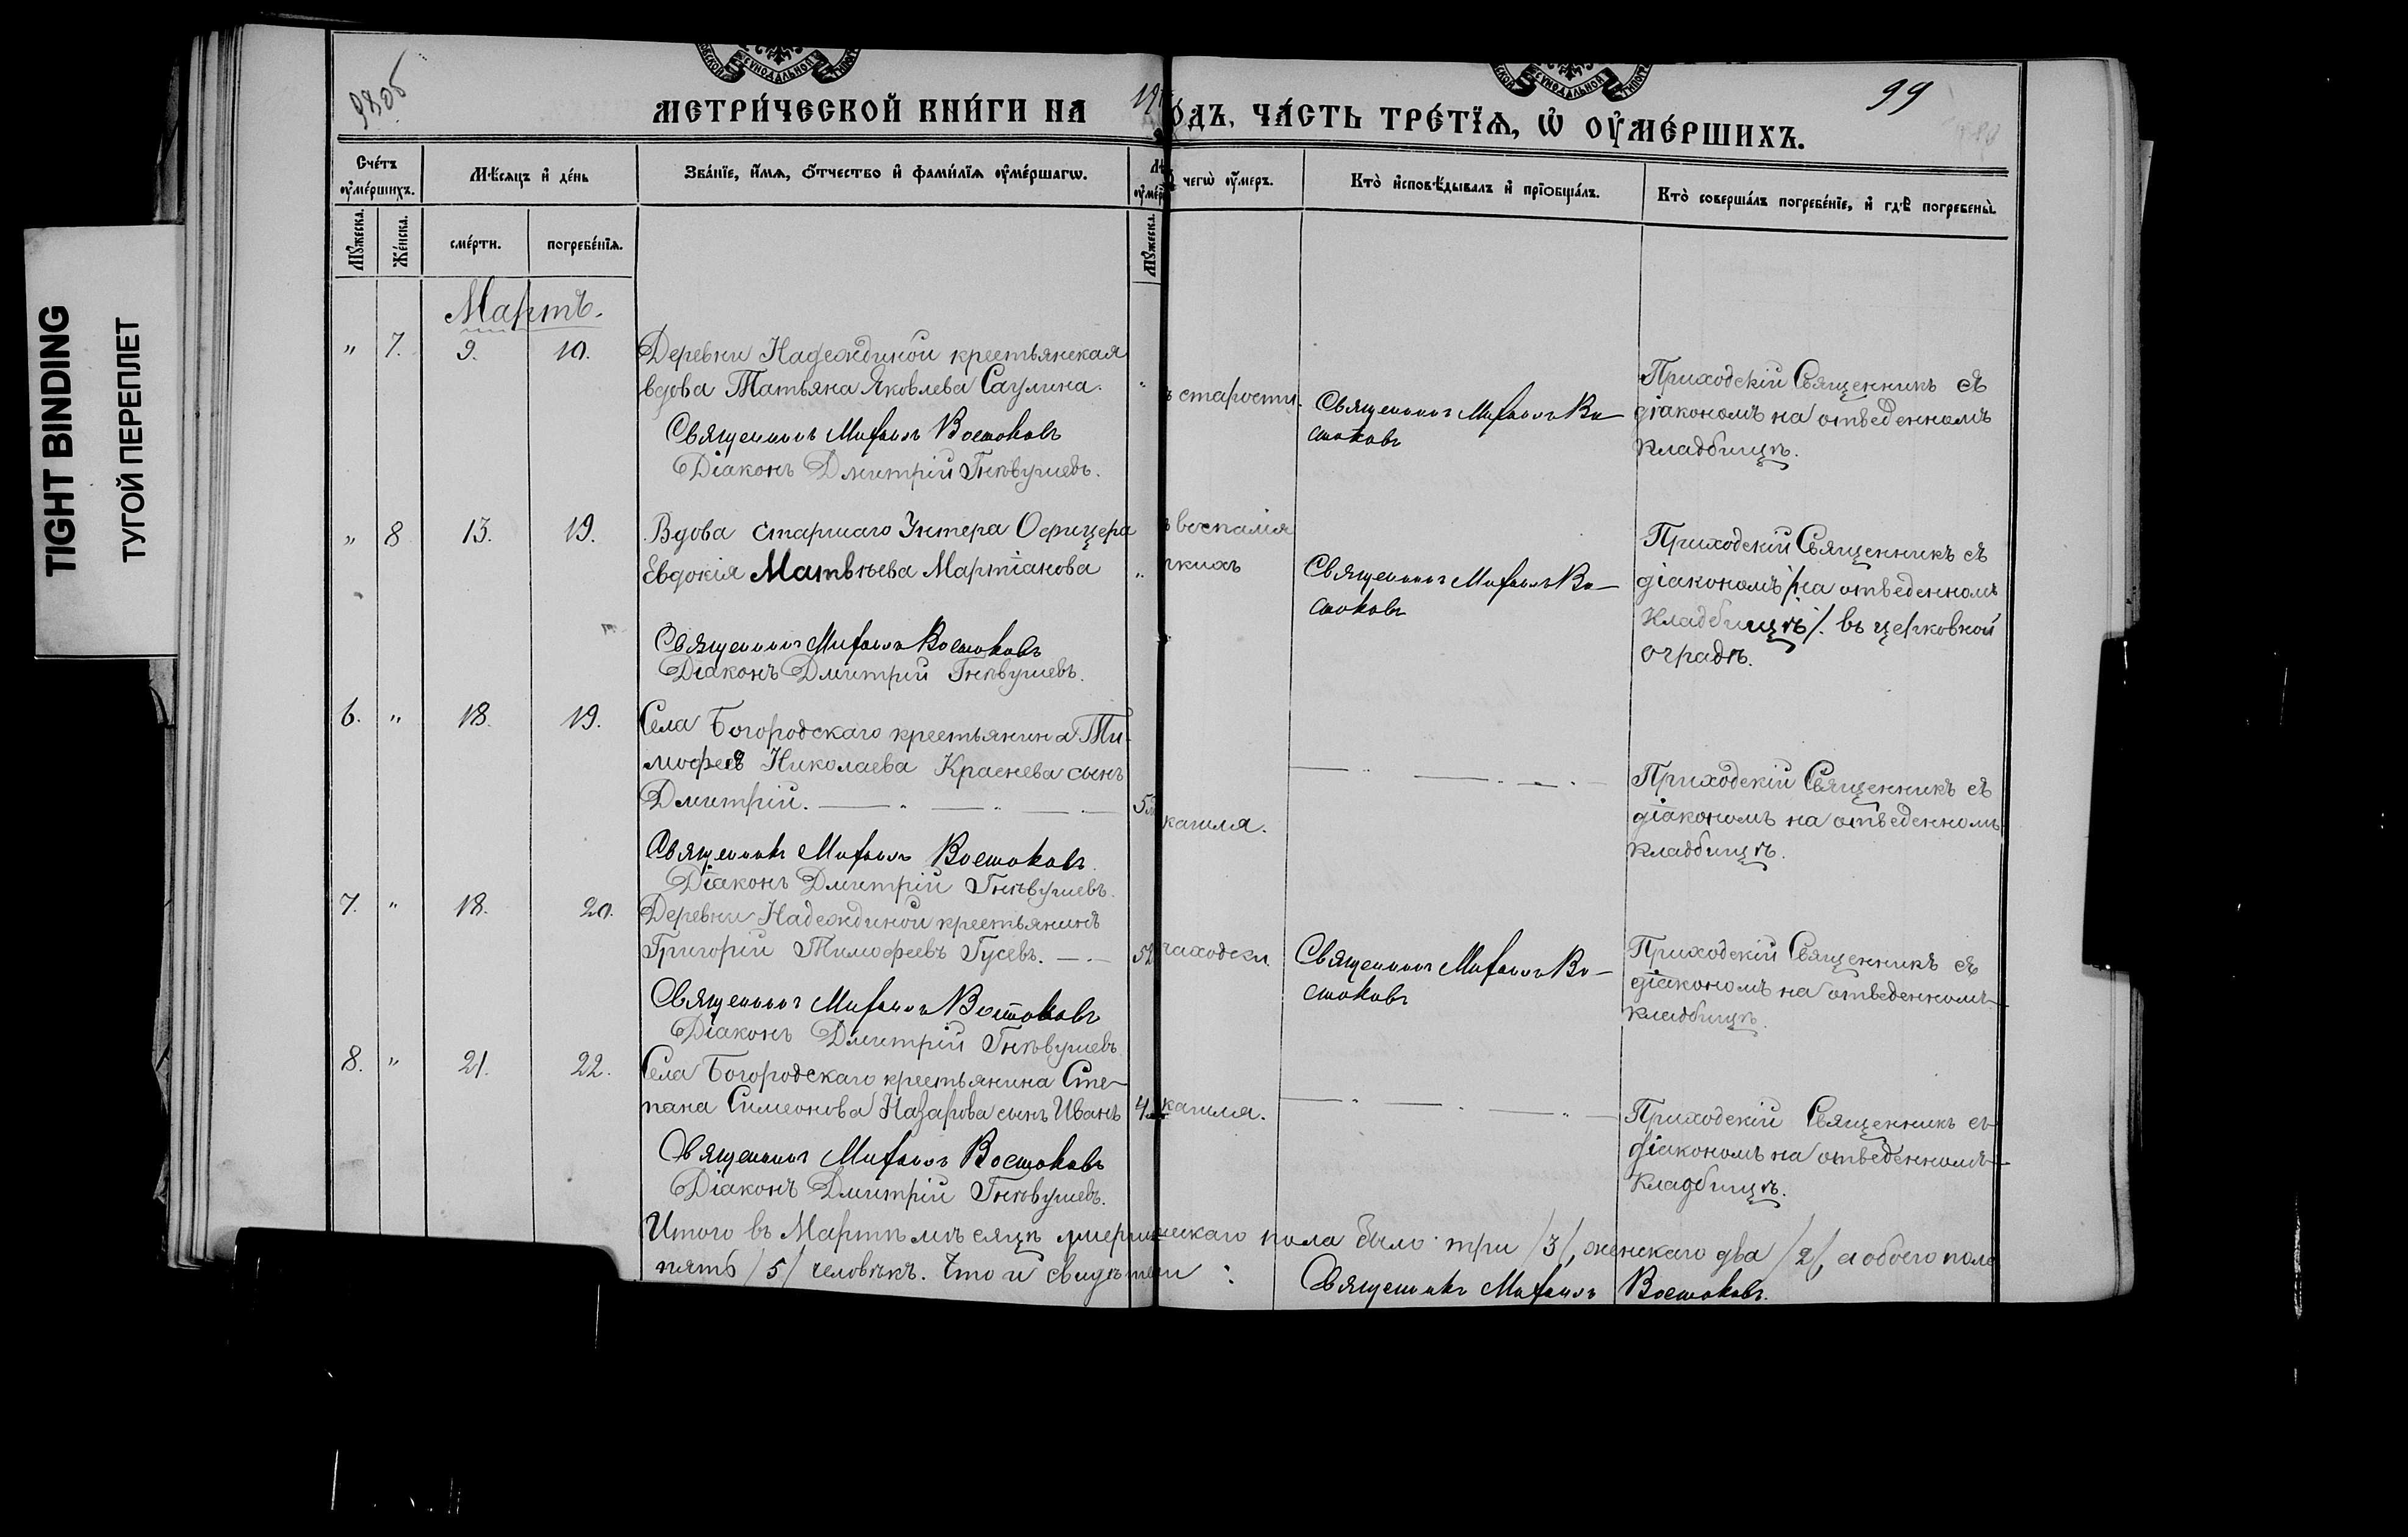 TIGHT BINDING
ТУГОЙ ПЕРЕПЛЕТ
98об
99
МЕТРИ́ЧЕСКОЙ КНИ́ГИ НА 19
ОДЪ, ЧА́СТЬ ТРЕ́ТЇѦ, Ѽ ОУ҆МЕ́РШИХЪ.
Сче́тъ оу҆ме́ршихъ.
Мѣ́сяцъ и҆ де́нь
Зва́нїе, и҆́мѧ, ѻ҆́тчество и҆ фами́лїѧ оу҆ме́ршагѡ.
чегѡ̀ оу҆́меръ.
Кто̀ и҆сповѣ́дывалъ и҆ прїобща́лъ.
Кто̀ соверша́лъ погребе́нїе, и҆ гдѣ̀ погребены̀.
Мꙋ́жеска.
Же́нска.
сме́рти.
погребе́нїѧ.
Мꙋ́жеска.
Мартъ.
" 7. 9. 10. Деревни Надеждиной крестьянская
вдова Татьяна Яковлева Саулина. "
Священникъ Михаилъ Востоковъ
Діаконъ Дмитрій Гнѣвушевъ.
ъ старости.
Священникъ Михаилъ Во-
стоковъ
Приходскій Священникъ съ
діакономъ на отведенномъ
кладбищѣ.
" 8 13. 19. Вдова Старшаго Унтера Офицера
Евдокія Матвѣева Мартіанова "
Священникъ Михаилъ Востоковъ
Діаконъ Дмитрій Гнѣвушевъ.
ъ воспалія
гкихъ
Священникъ Михаилъ Во-
стоковъ
Приходскій Священникъ съ
діакономъ /на отведенномъ
Кладбищѣ/. въ церковной
оградѣ.
6. " 18. 19. Села Богородскаго крестьянина Ти-
мофея Николаева Краснева сынъ
Дмитрій. 5
Священникъ Михаилъ Востоковъ.
Діаконъ Дмитрій Гнѣвушевъ.
кашля.
Приходскій Священникъ съ
діакономъ на отведенномъ
кладбищѣ.
7. " 18. 20. Деревни Надеждиной крестьянинъ
Григорій Тимофеевъ Гусевъ. 52
Священникъ Михаилъ Востоковъ
Діаконъ Дмитрій Гнѣвушевъ
чаходки.
Священникъ Михаилъ Во-
стоковъ
Приходскій Священникъ съ
діакономъ на отведенномъ
кладбищѣ.
8. " 21. 22. Села Богородскаго крестьянина Сте-
пана Симеонова Назарова сынъ Иванъ 4
Священникъ Михаилъ Востоковъ
Діаконъ Дмитрій Гнѣвушевъ.
кашля.
Приходскій Священникъ съ
діакономъ на отведенномъ
Кладбищѣ.
Итого въ Мартѣ мѣсяцѣ умерш ескаго пола было три /3/, женскаго два /2/, а обоего пола
пять /5/ человѣкъ. Что и свидѣтели :
Священникъ Михаилъ Востоковъ.